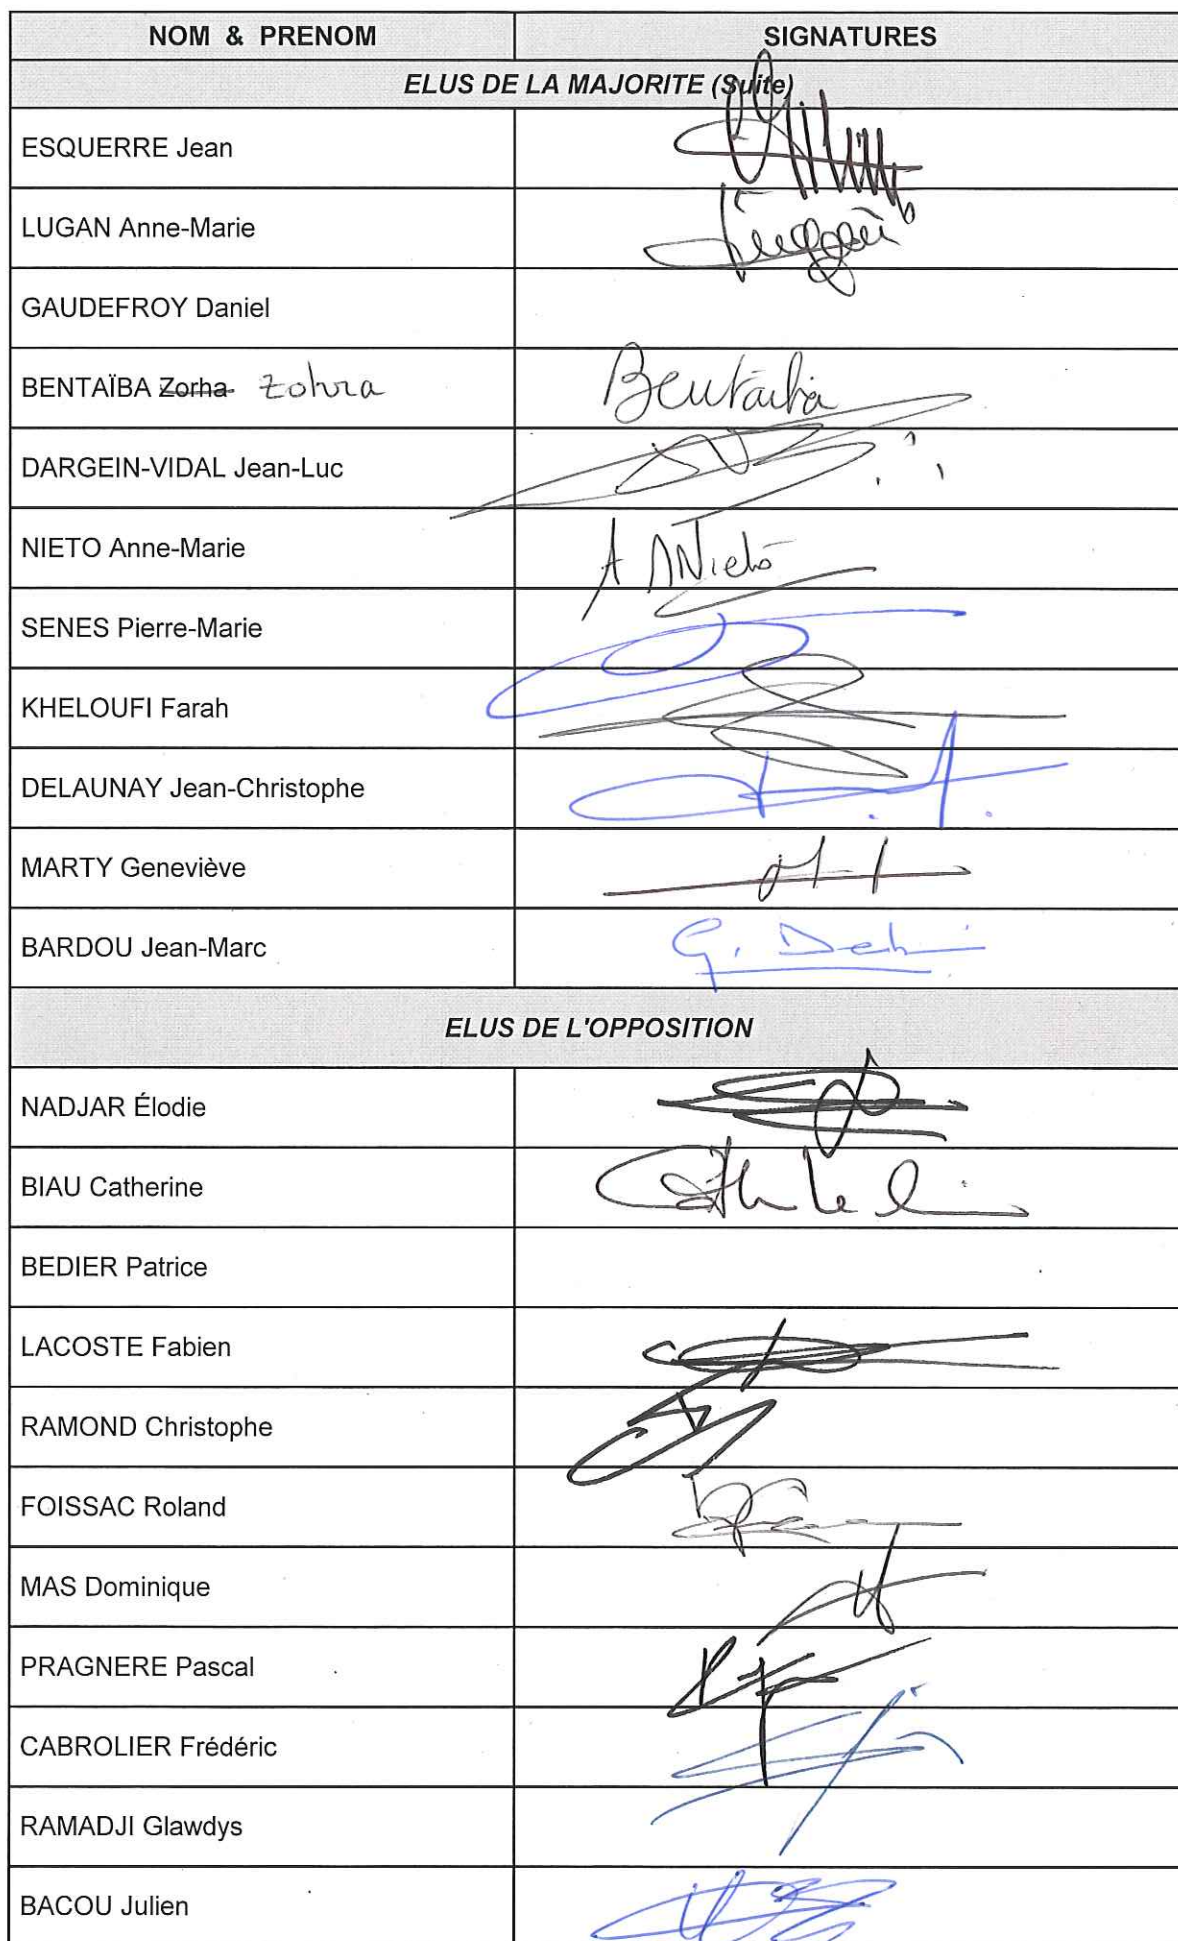 NOM & PRENOM SIGNATURES
ELUS DE LA MAJORITE (Suite)
ESQUERRE Jean
LUGAN Anne-Marie
GAUDEFROY Daniel
BENTAÏBA Zorha Zohra Bentaïba
DARGEIN-VIDAL Jean-Luc
NIETO Anne-Marie A MNieto
SENES Pierre-Marie
KHELOUFI Farah
DELAUNAY Jean-Christophe
MARTY Geneviève
BARDOU Jean-Marc G.
ELUS DE L'OPPOSITION
NADJAR Élodie
BIAU Catherine
BEDIER Patrice
LACOSTE Fabien
RAMOND Christophe
FOISSAC Roland
MAS Dominique
PRAGNERE Pascal
CABROLIER Frédéric
RAMADJI Glawdys
BACOU Julien